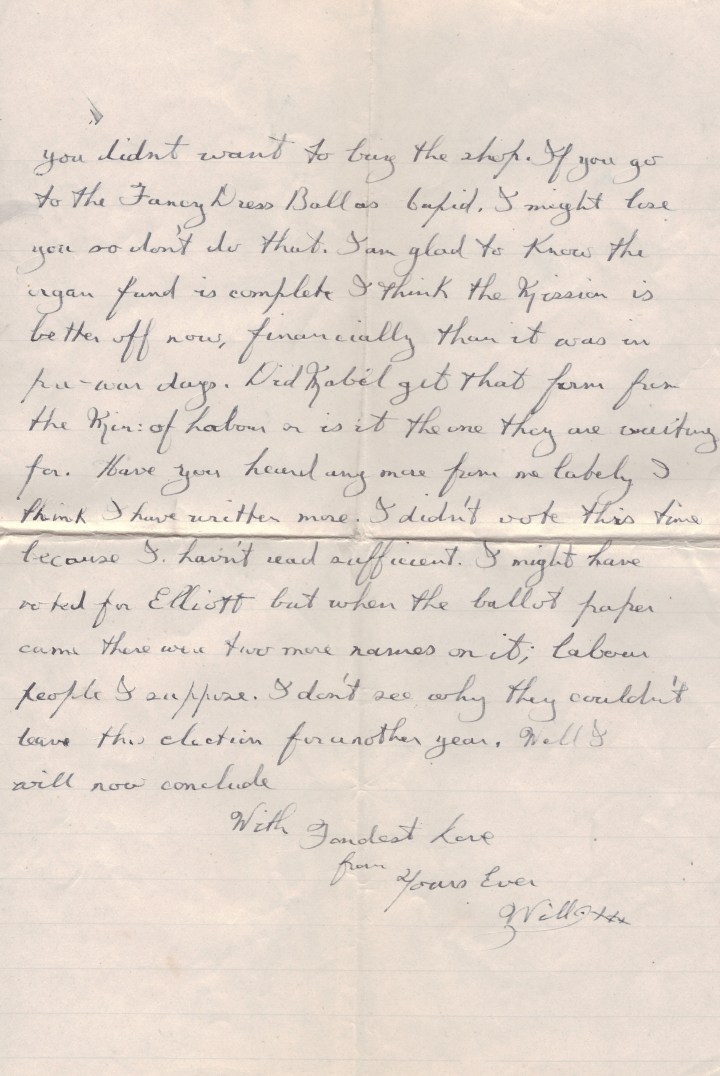 you didnt want to buy the shop. If you go
to the Fancy Dress Ball as Cupid. I might lose
you so don't do that. I am glad to know the
organ fund is complete I think the Mission is
better off now, financially than it was in
pre-war days. Did Mabel get that form from
the Min: of Labour or is it the one they are waiting
for. Have you heard any more from me lately I
think I have written more. I didn't vote this time
because I. havn't read sufficient. I might have
voted for Elliott but when the ballot paper
came there were two more names on it; labour
people I suppose. I don't see why they couldn't
leave this election for another year. Well I
will now conclude
With Fondest Love
from
Yours Ever
Will xxx